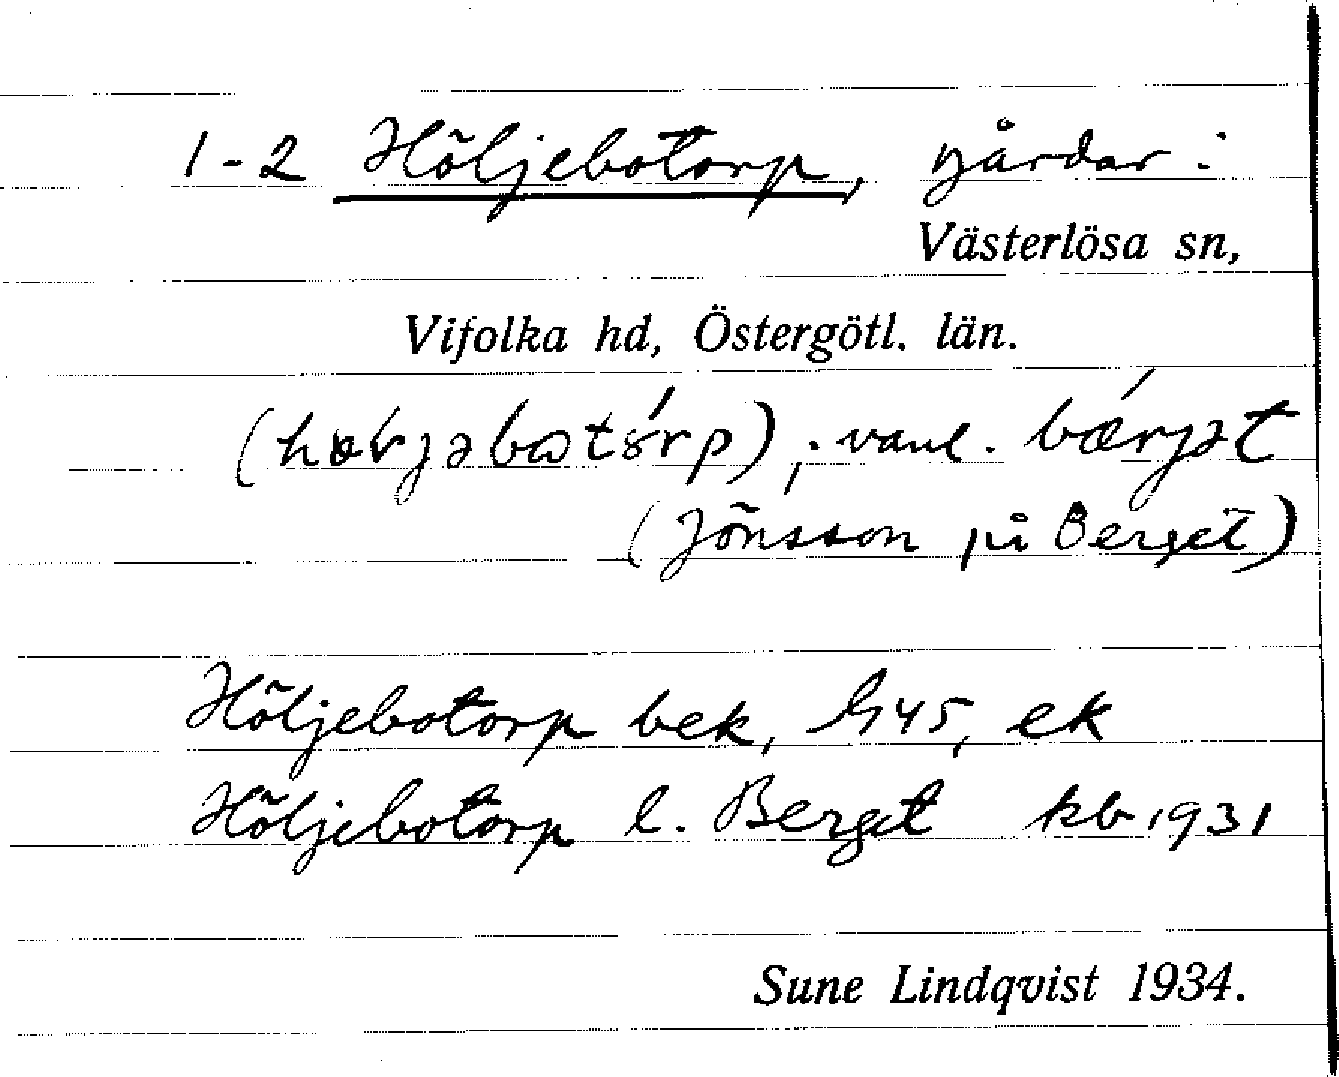 1-2 Höljebotorp, gårdar i
Västerlösa sn,
Vifolka hd, Östergötl. län.
vanl. bærjət
(Jönsson på Berget)
Höljebotorp bek, G45, ek
Höljebotorp l. Berget kb 1931
Sune Lindqvist 1934.